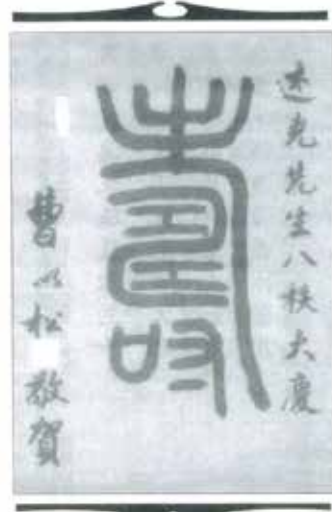 述先先生八秩大慶
壽
曹以松 敬賀